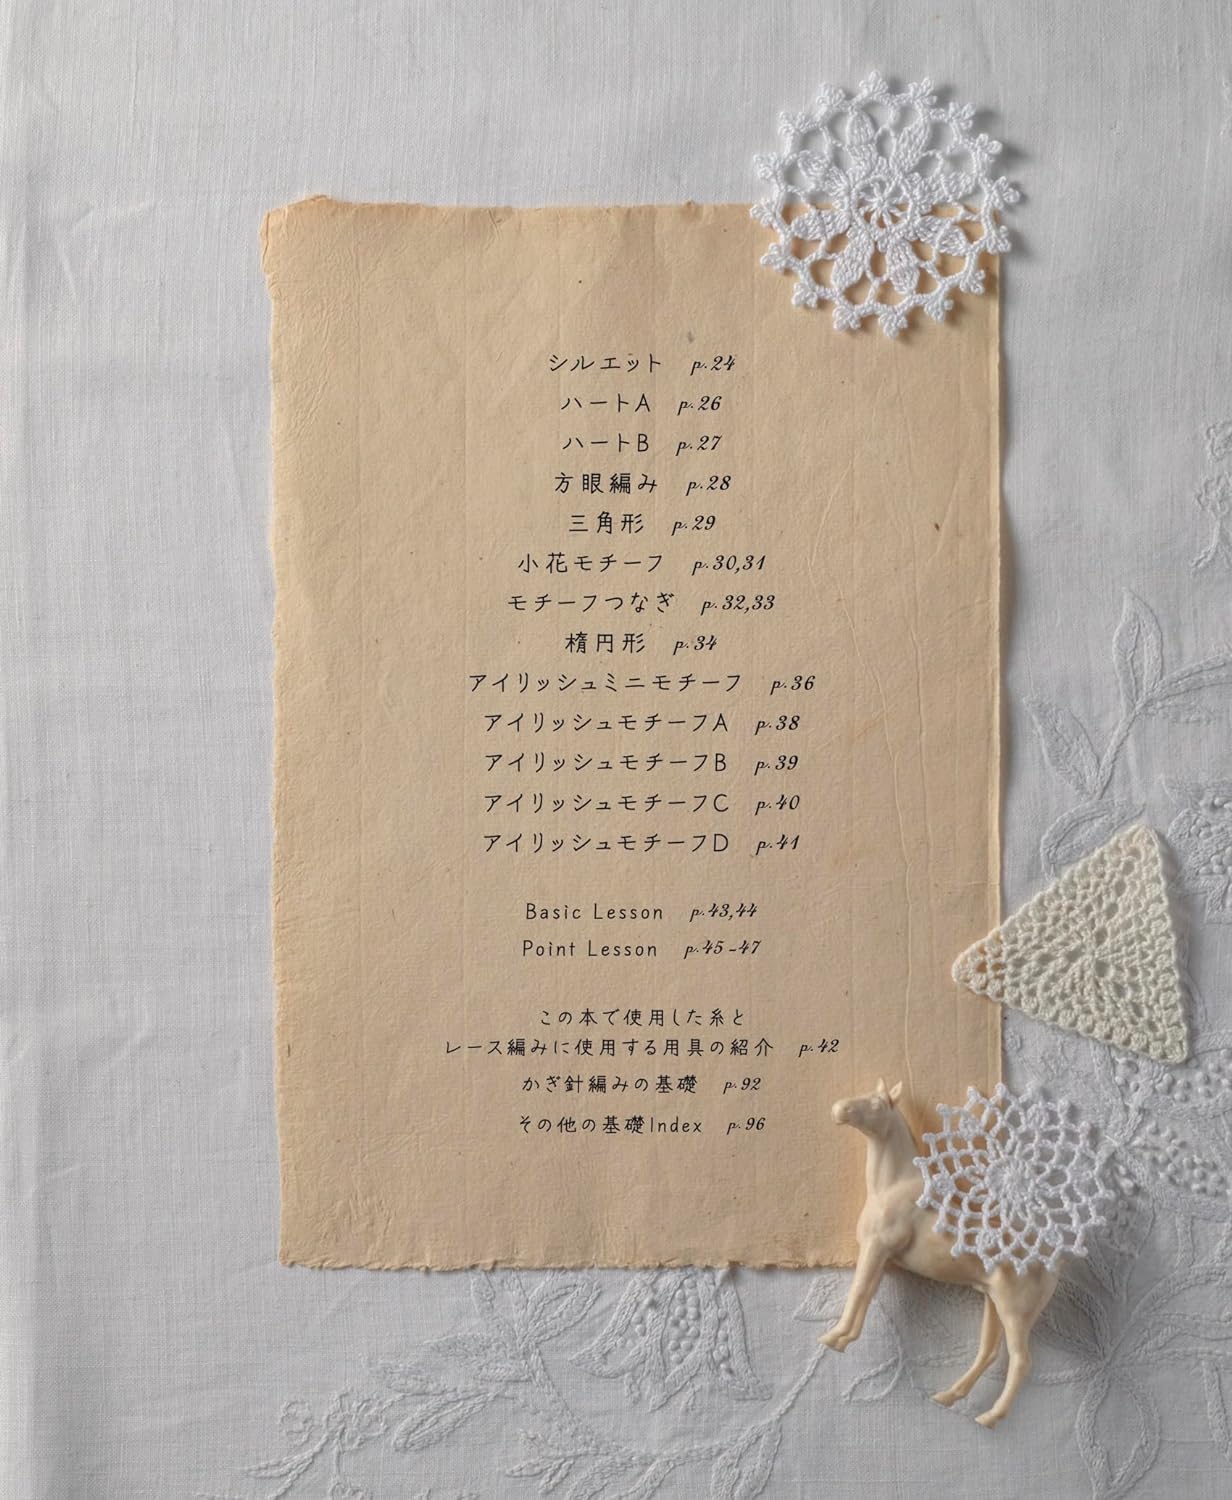 シルエット p.24
ハートA p.26
ハートB p.27
方眼編み p.28
三角形 p.29
小花モチーフ p.30,31
モチーフつなぎ p.32,33
楕円形 p.34
アイリッシュミニモチーフ p.36
アイリッシュモチーフA p.38
アイリッシュモチーフB p.39
アイリッシュモチーフC p.40
アイリッシュモチーフD p.41
Basic Lesson p.43,44
Point Lesson p.45-47
この本で使用した糸と
レース編みに使用する用具の紹介 p.42
かぎ針編みの基礎 p.92
その他の基礎Index p.96